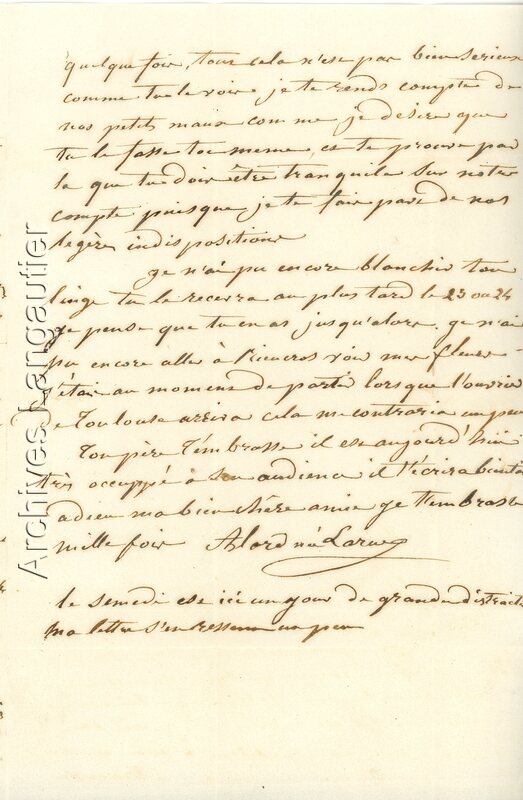 quelque fois, tout cela n'est pas bien serieux
comme tu le vois je te rends compte de
nos petits maux comme je desire que
tu le fasse toi meme, ce te prouve par
la que tu dois être tranquile sur notre
compte puisque je te fais part de nos
legères indispositions
je n'ai pu encore blanchir ton
linge tu le recevra au plus tard le 23 ou 24
je pense que tu en as jusqu'alors. je n'ai
pu encore aller à voir mes fleurs
j'étais au moment de partir lorsque l'ouvrier
de Toulouse arriva cela me contraria un peu
Ton père t'embrasse il est aujourd'hui
très occupé à son audience il t'écrira bientot
adieu ma bien chère amie je t'embrasse
mille fois Alard née
le semedi est ici un jour de grande distraction
ma lettre s'en ressent un peu
Archives Langautier